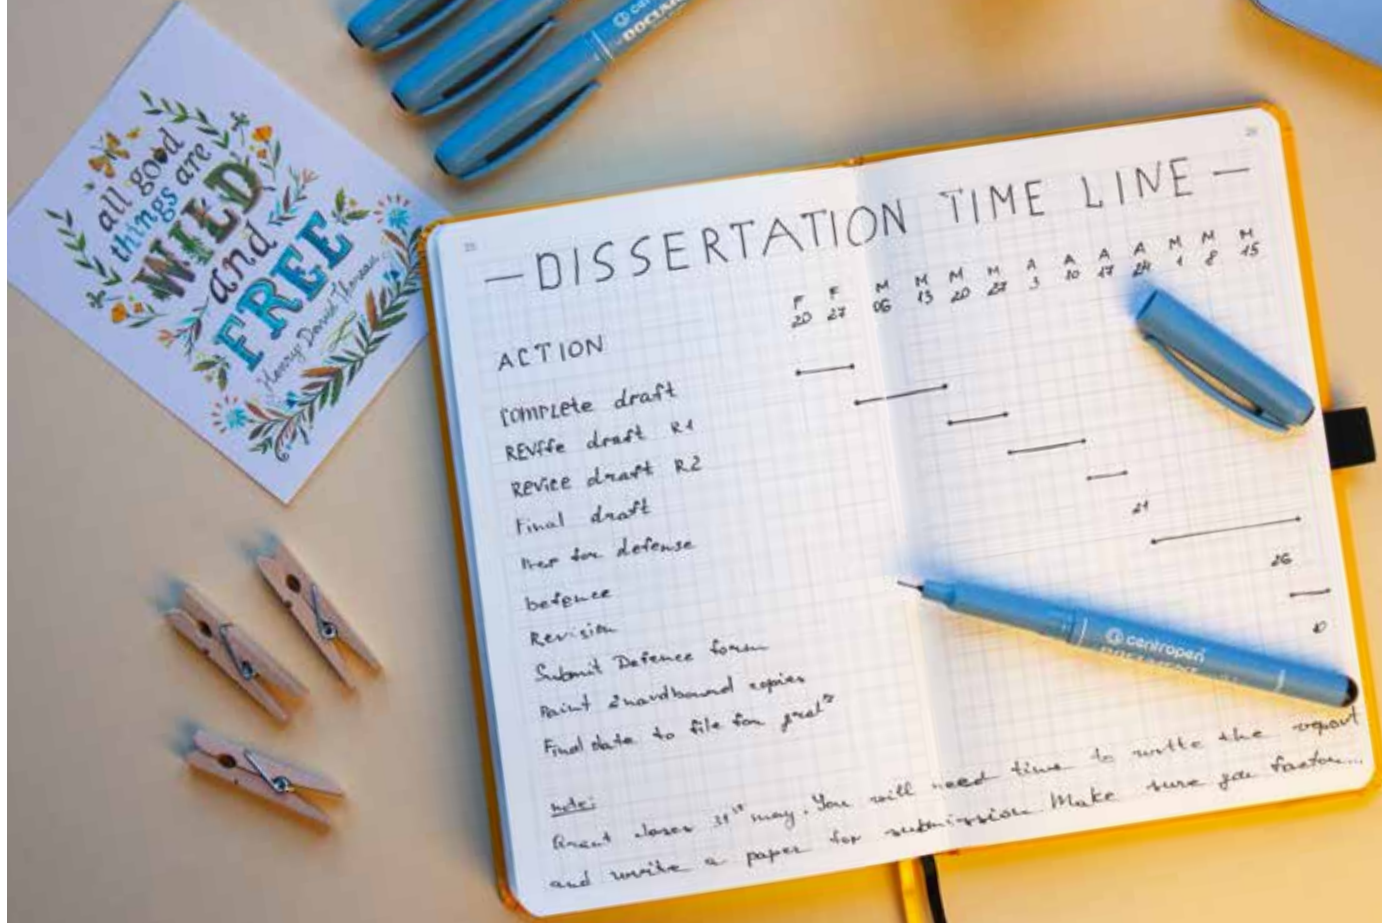 all good
things are
WILD
and
FREE
Henry David Thoreau
centropen
— DISSERTATION TIME LINE —
F F M M M M A A A A M M M
20 27 06 13 20 27 3 10 17 24 1 8 15
ACTION
COMPLETE draft
draft R1
REVICE draft R2
Final draft
for defense
Defence
21
Revision
Submit Defence form
26
Paint 2 hardbound copies
Final date to file for
10
note:
Grant closes 31st may. You will need time to write the report
and write a paper for submission Make sure you factor...